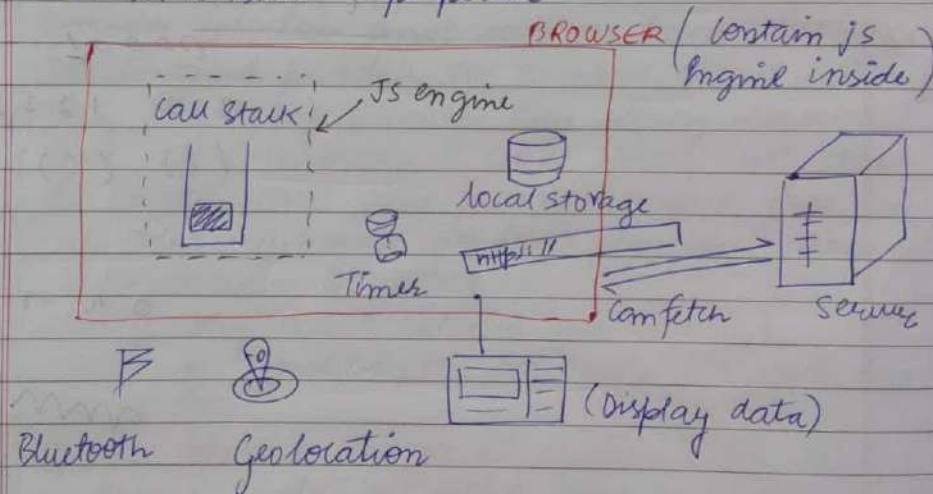 BROWSER (Contain js
Engine inside)
Call Stack
JS engine
local storage
Timer
http://
Can fetch
Server
(Display data)
Bluetooth
Geolocation